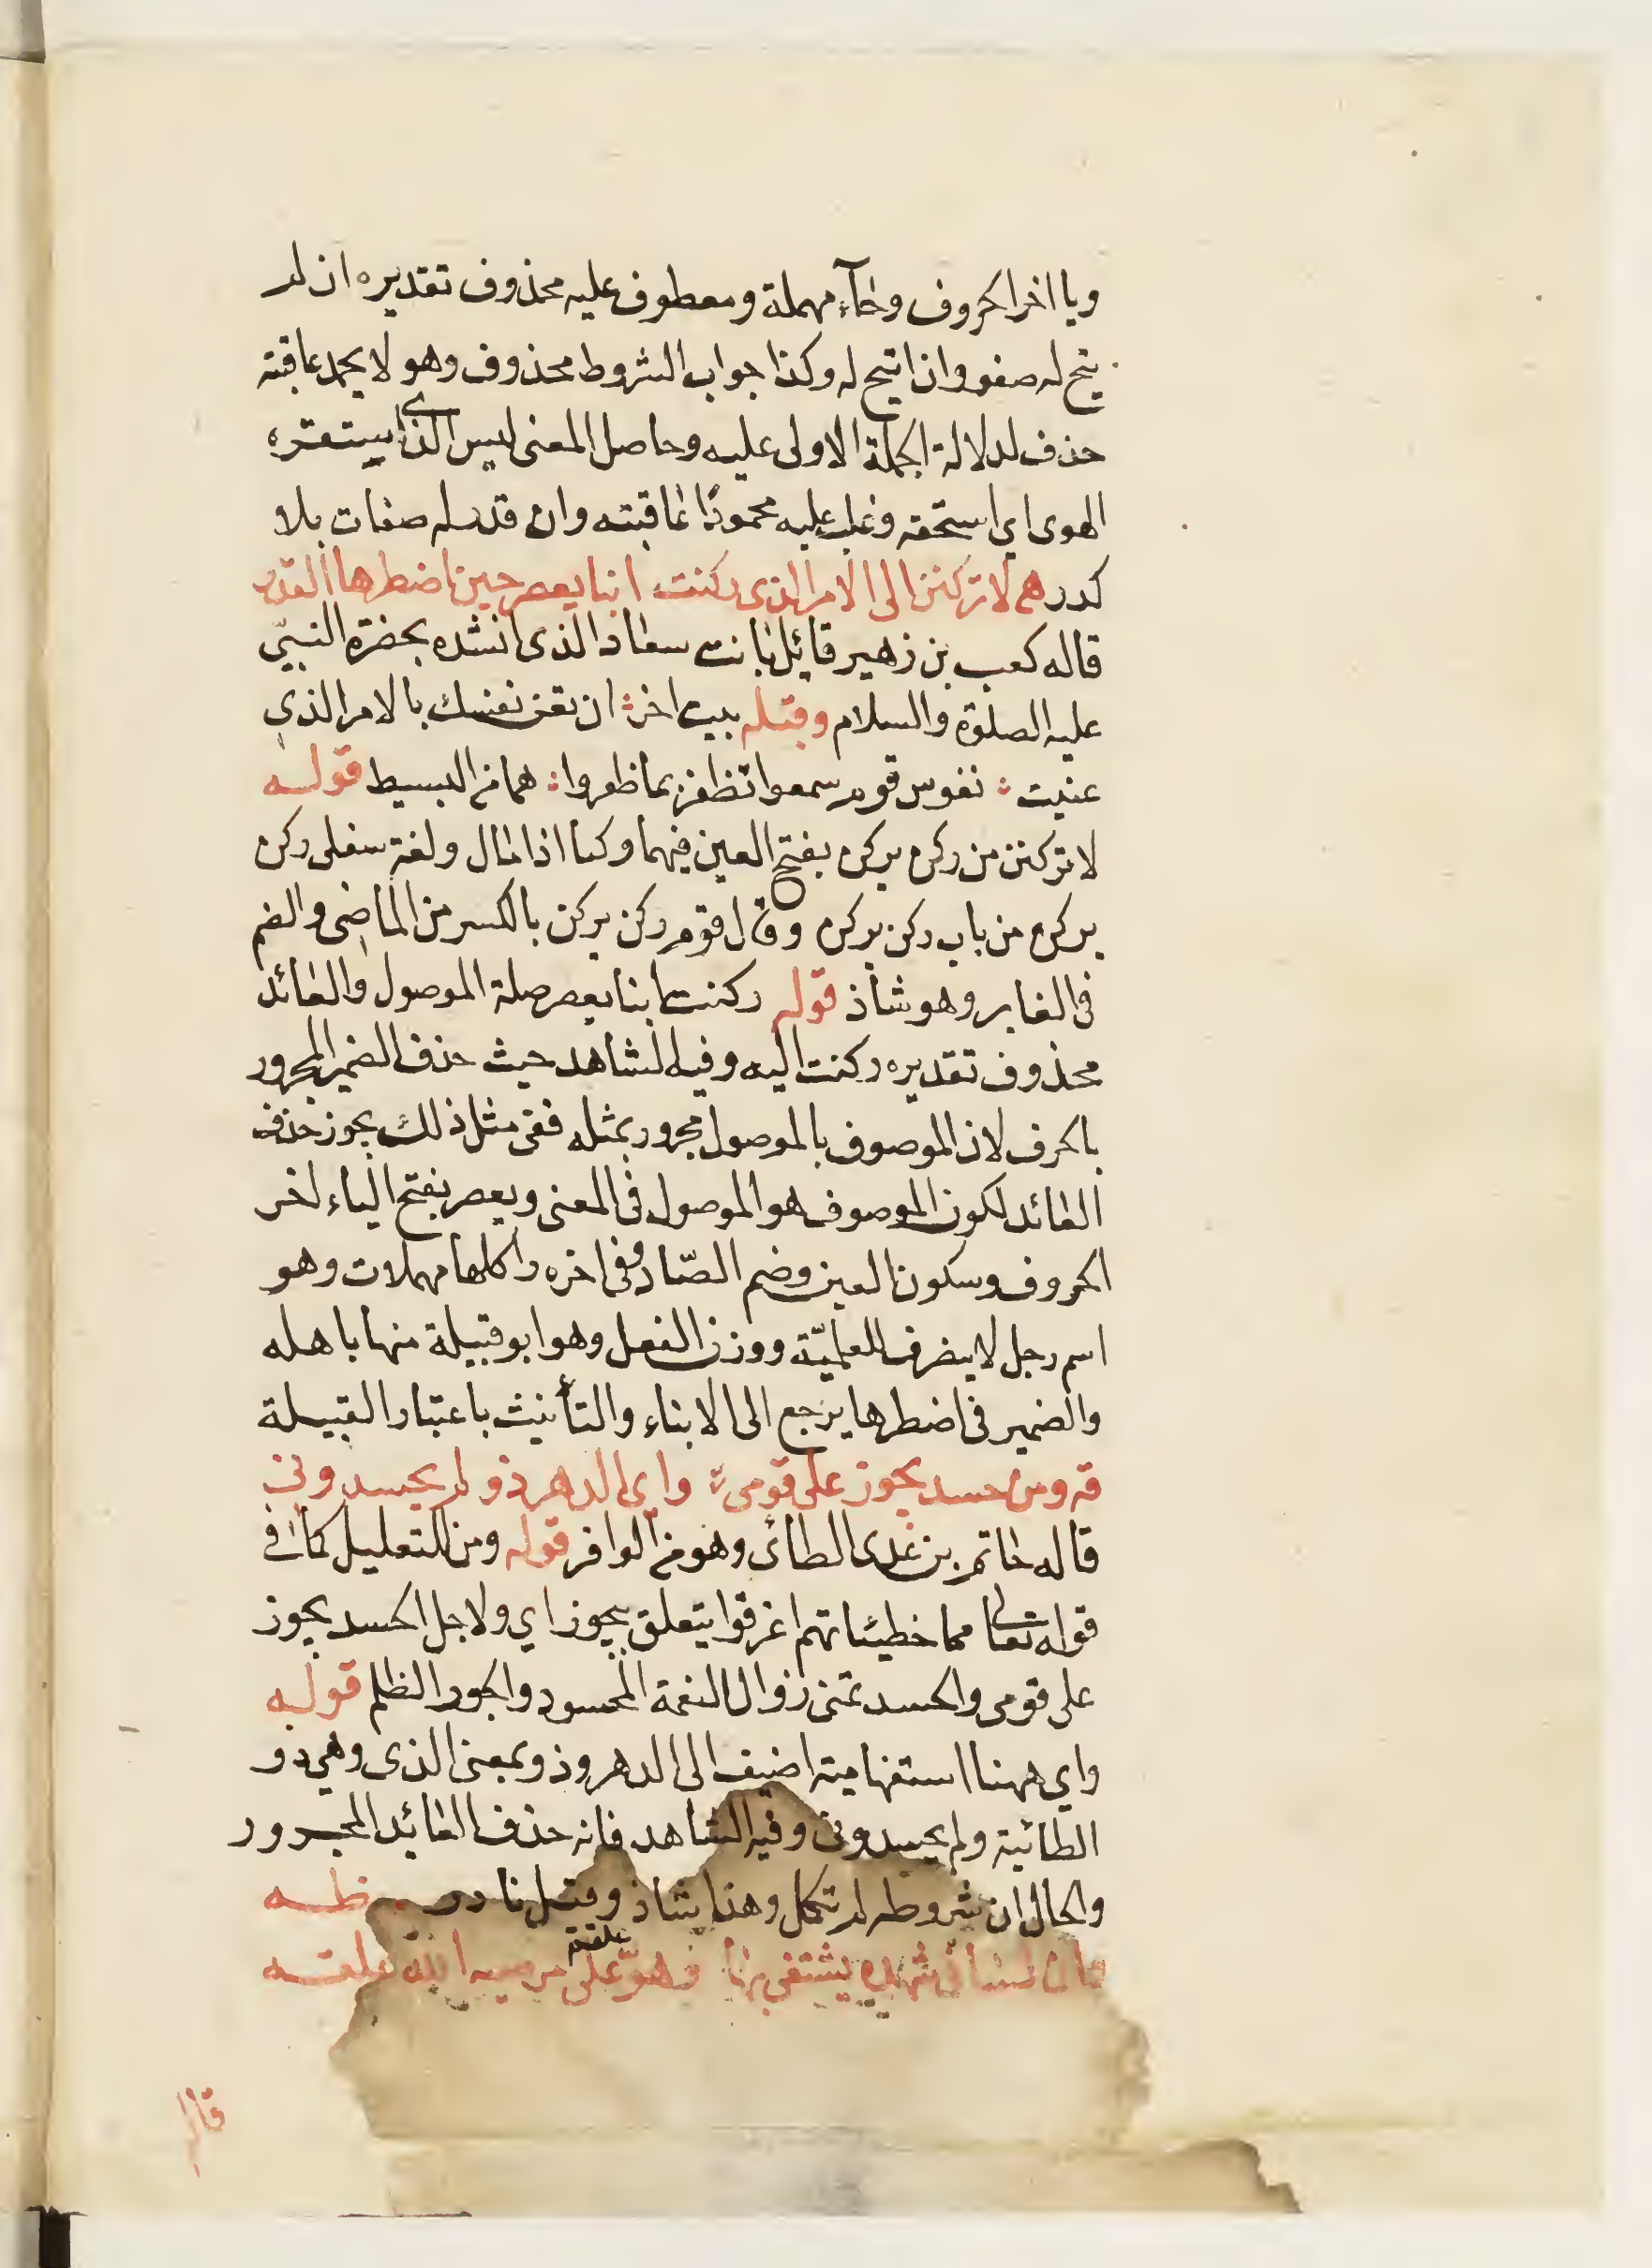 ويا اخر الحروف وحاء مهملة ومعطوف عليه محذوف تقديره ان لم
يتح له صفو وان اتيح له وكذا جواب الشروط محذوف وهو لا يحمد عاقبته
حذف لدلالة الجملة الاولى عليه وحاصل المعنى ليس الذي يستفزه
الهوى اي استحقه وغلب عليه محمودًا عاقبته وان قدر له صفات بلا
كدر هع لا تركنن الى الامر الذى ركنت ابنا يعصر حين اضطرها القدر
قاله كعب بن زهير قائل بانت سعاد الذى انشده بحضرة النبيّ
عليه الصلوة والسلام وقبله بيت اخر ان تعن نفسك بالامر الذي
عنيت نفوس قوم سمعوا تظفر بما ظفروا هما من البسيط قوله
لا تركنن من ركن يركن بفتح العين فيهما وكنا اذا مال ولغة سفلى ركن
يركن من باب ركن يركن وقال قوم ركن يركن بالكسر من الماضى والضم
فى الغابر وهو شاذ قوله ركنت ابنا يعصر صلة الموصول والعائد
محذوف تقديره ركنت اليه وفيه الشاهد حيث حذف الضمير المجرور
بالحرف لان الموصوف بالموصول مجرور بمثله ففى مثل ذلك يجوز حذف
العائد لكون الموصوف هو الموصول فى المعنى ويعصر بفتح الياء اخر
الحروف وسكون العين وضم الصّاد وفى اخره راكلها مهملات وهو
اسم رجل لا ينصرف للعلميّة ووزن الفعل وهو ابو قبيلة منها باهله
والضمير فى اضطرها يرجع الى الابناء والتأنيث باعتبار القبيلة
قه ومن حسد يجوز على قومى واي الدهر ذو لم يحسدونى
قاله حاتم بن عدى الطائى وهو من الوافر قوله ومن للتعليل كما فى
قوله تعالى مما خطيئاتهم اغرقوا يتعلق بيجوز اي ولاجل الحسد يجوز
على قومى والحسد تمنى زوال النعمة المحسود والجور الظلم قوله
واي ههنا استفهامية اضيف الى الدهر وذو بمعنى الذى وهي ذو
الطائية ولم يحسدونى وفيه الشاهد فانه حذف العائد المجرور
والحال ان شروطه لم تكمل وهذا شاذ وقيل نادر ظه
وان لسانى شهدة يشتفى بها وهوّ على من صبه الله علقم
علقمه
قاله